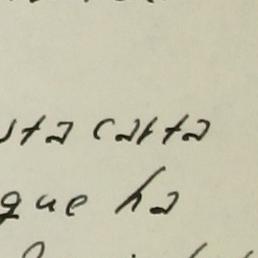 sta carta
que ha